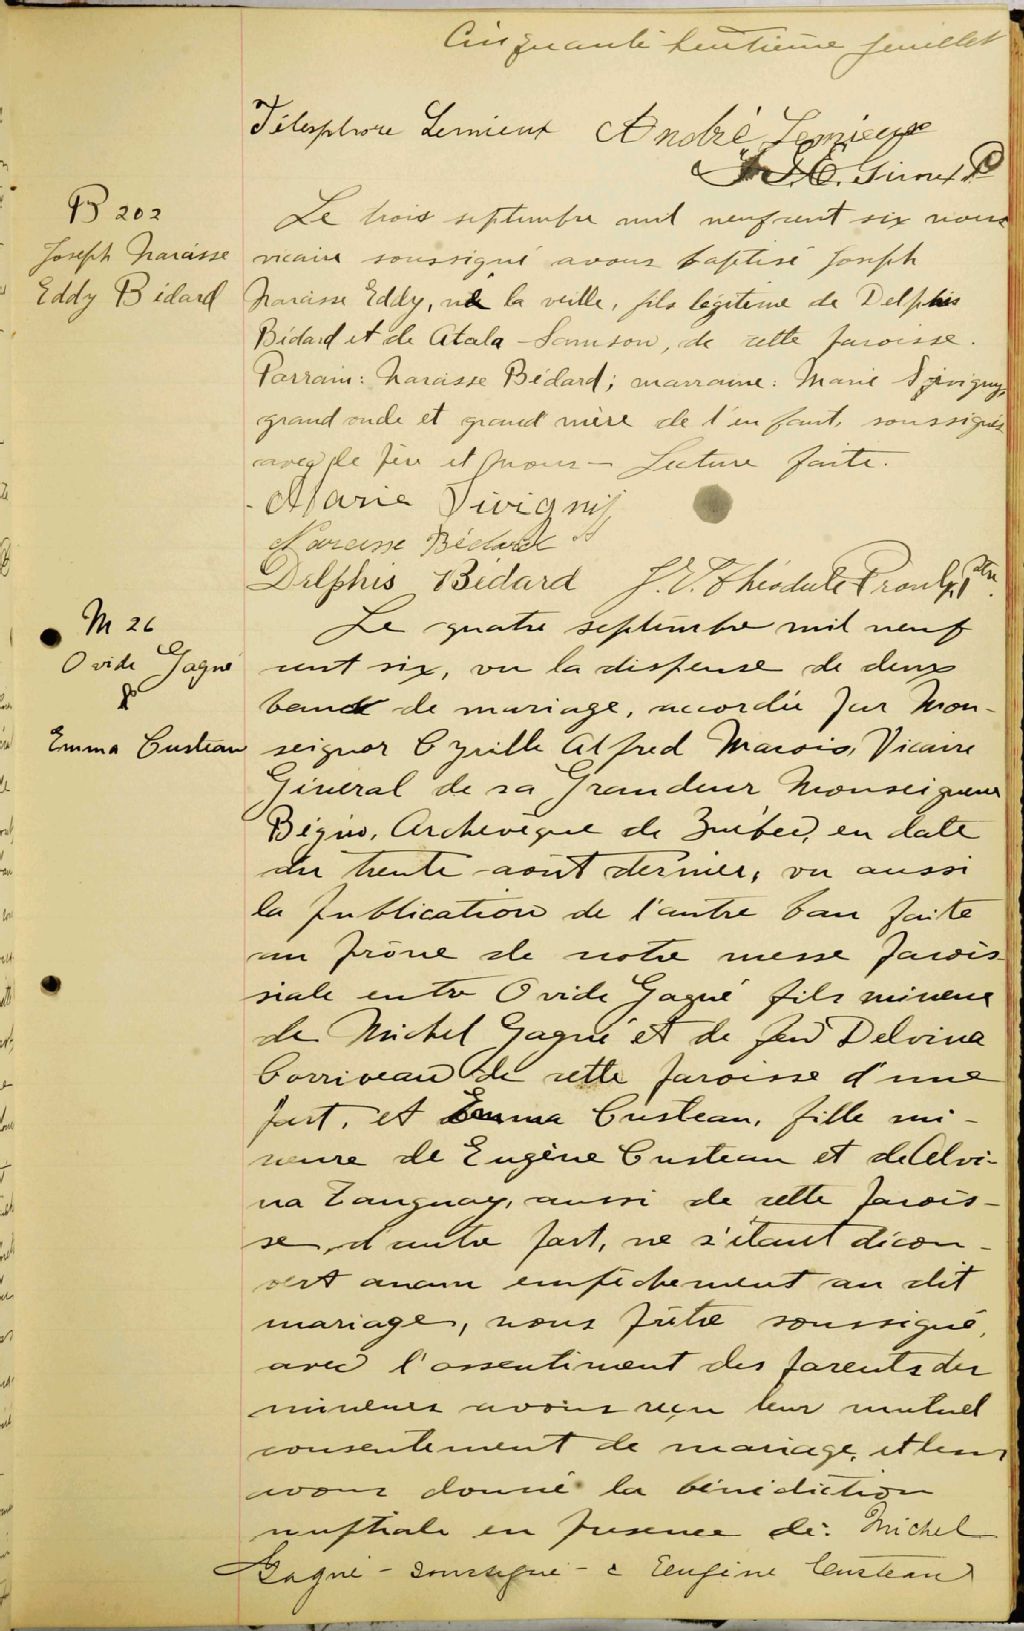 Cinquante huitième feuillet
Télesphore Lemieux André Lemieux
J. E. Giroux
B 202
Joseph Narcisse
Eddy Bédard
Le trois septembre mil neuf cent six nous
vicaire soussigné avons baptisé Joseph
Narcisse Eddy, né la veille, fils légitime de Delphis
Bédard et de Atala Samson, de cette paroisse.
Parrain: Narcisse Bédard; marraine: Marie Sivigny,
grand oncle et grand'mère de l'enfant, soussignés
avec le père et nous - Lecture faite.
Marie Sivigny
Narcisse Bédard
Delphis Bédard J. E. Théodule Proulx Ptre.
M 26
Ovide Gagné
&
Emma Custeau
Le quatre septembre mil neuf
cent six, vu la dispense de deux
bans de mariage, accordée par Mon-
seignor Cyrille Alfred Marois, Vicaire
Général de sa Grandeur Monseigneur
Bégin, Archevêque de Québec, en date
du trente août dernier, vu aussi
la publication de l'autre ban faite
au prône de notre messe parois-
siale entre Ovide Gagné fils mineur
de Michel Gagné et de feu Delvina
Corriveau de cette paroisse d'une
part, et Emma Custeau, fille mi-
neure de Eugène Custeau et de Alvi-
na Tanguay, aussi de cette parois-
se, d'autre part, ne s'étant décou-
vert aucun empêchement au dit
mariage, nous prêtre soussigné,
avec l'assentiment des parents des
mineurs avons reçu leur mutuel
consentement de mariage, et leur
avons donné la bénédiction
nuptiale en présence de: Michel
Gagné - soussigné - & Eugène Custeau